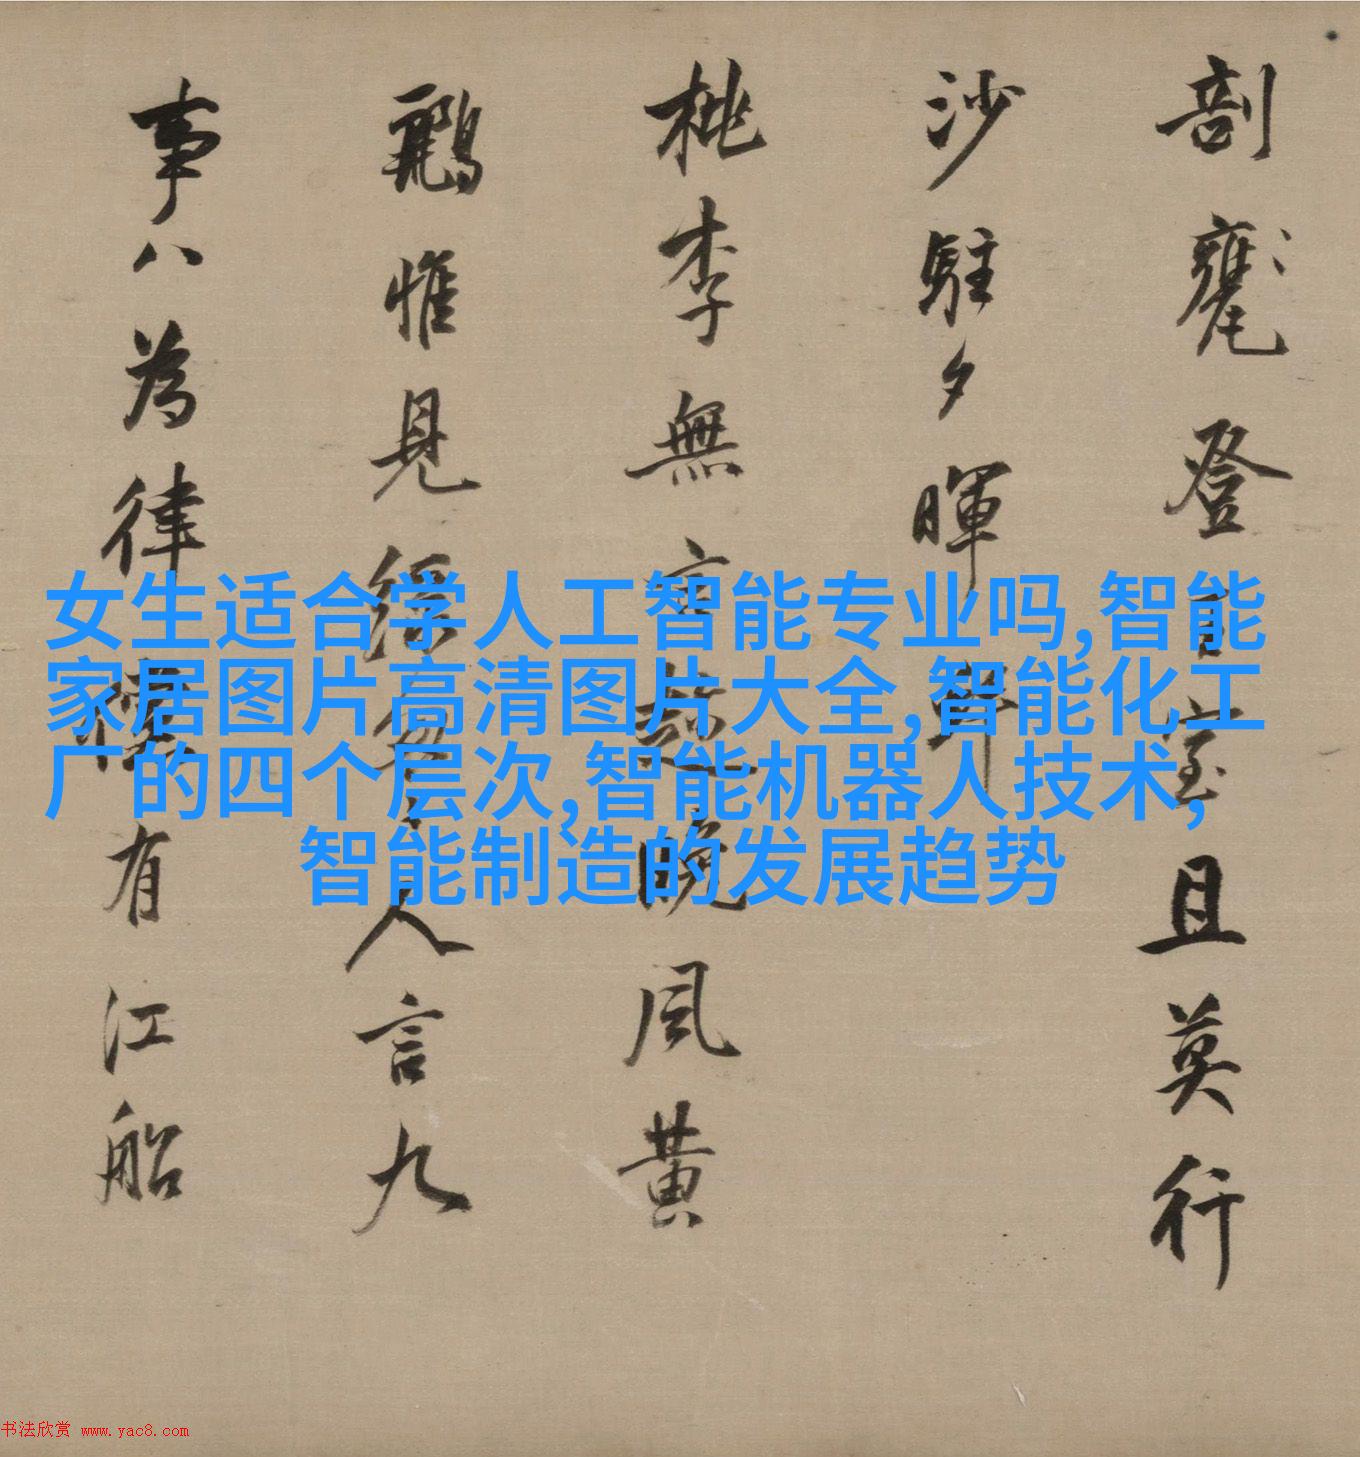 剖甕登百室且莫行
沙駐夕暉
桃李無言趁晚風黃
鸝惟見人言九
事八為律有江船
女生适合学人工智能专业吗,智能
家居图片高清图片大全,智能化工
厂的四个层次,智能机器人技术,
智能制造的发展趋势
书法欣赏 www.yac8.com